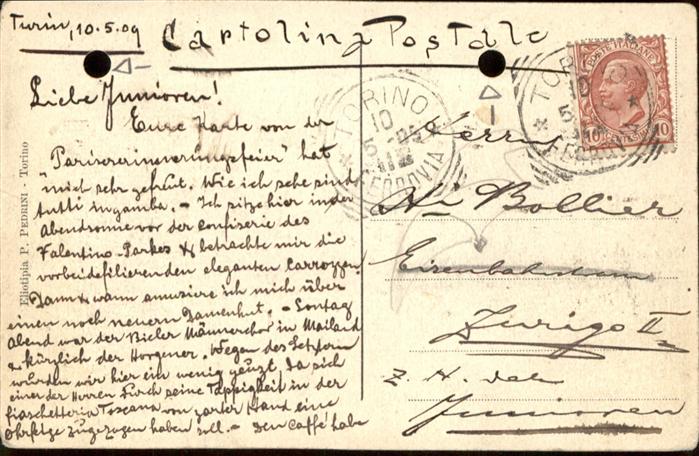 Turin, 10.5.09
Cartolina Postale
Liebe Junioren!
Eure Karte von der
"Pariserinnerungsfeier" hat
mich sehr gefreut. Wie ich sehe sind
tutti in gamba. – Ich sitze hier in der
Abendsonne vor der Confiserie des
Valentino-Parkes & betrachte mir die
vorbeidefilierenden eleganten Carrozzen.
Dann & wann amusiere ich mich über
einen noch neuern Damenhut. – Sontag
Abend war der Bieler Männerchor in Mailand
& kürzlich der Horgener. Wegen des Letztern
wurden wir hier ein wenig geuzt, da sich
einer der Herren durch seine Tappigkeit in der
fiaschetteria Toscana von zarter Hand eine
Ohrfeige zugezogen haben soll. – Den Caffé habe
Eliotipia P. PEDRINI - Torino
TORINO
10
5
FERROVIA
TORINO
10
5
FERROVIA
POSTE ITALIANE
10
10
Herrn
Hri Bollier
Eisenbahnbeam
Zurigo II
z. H. den
Junioren